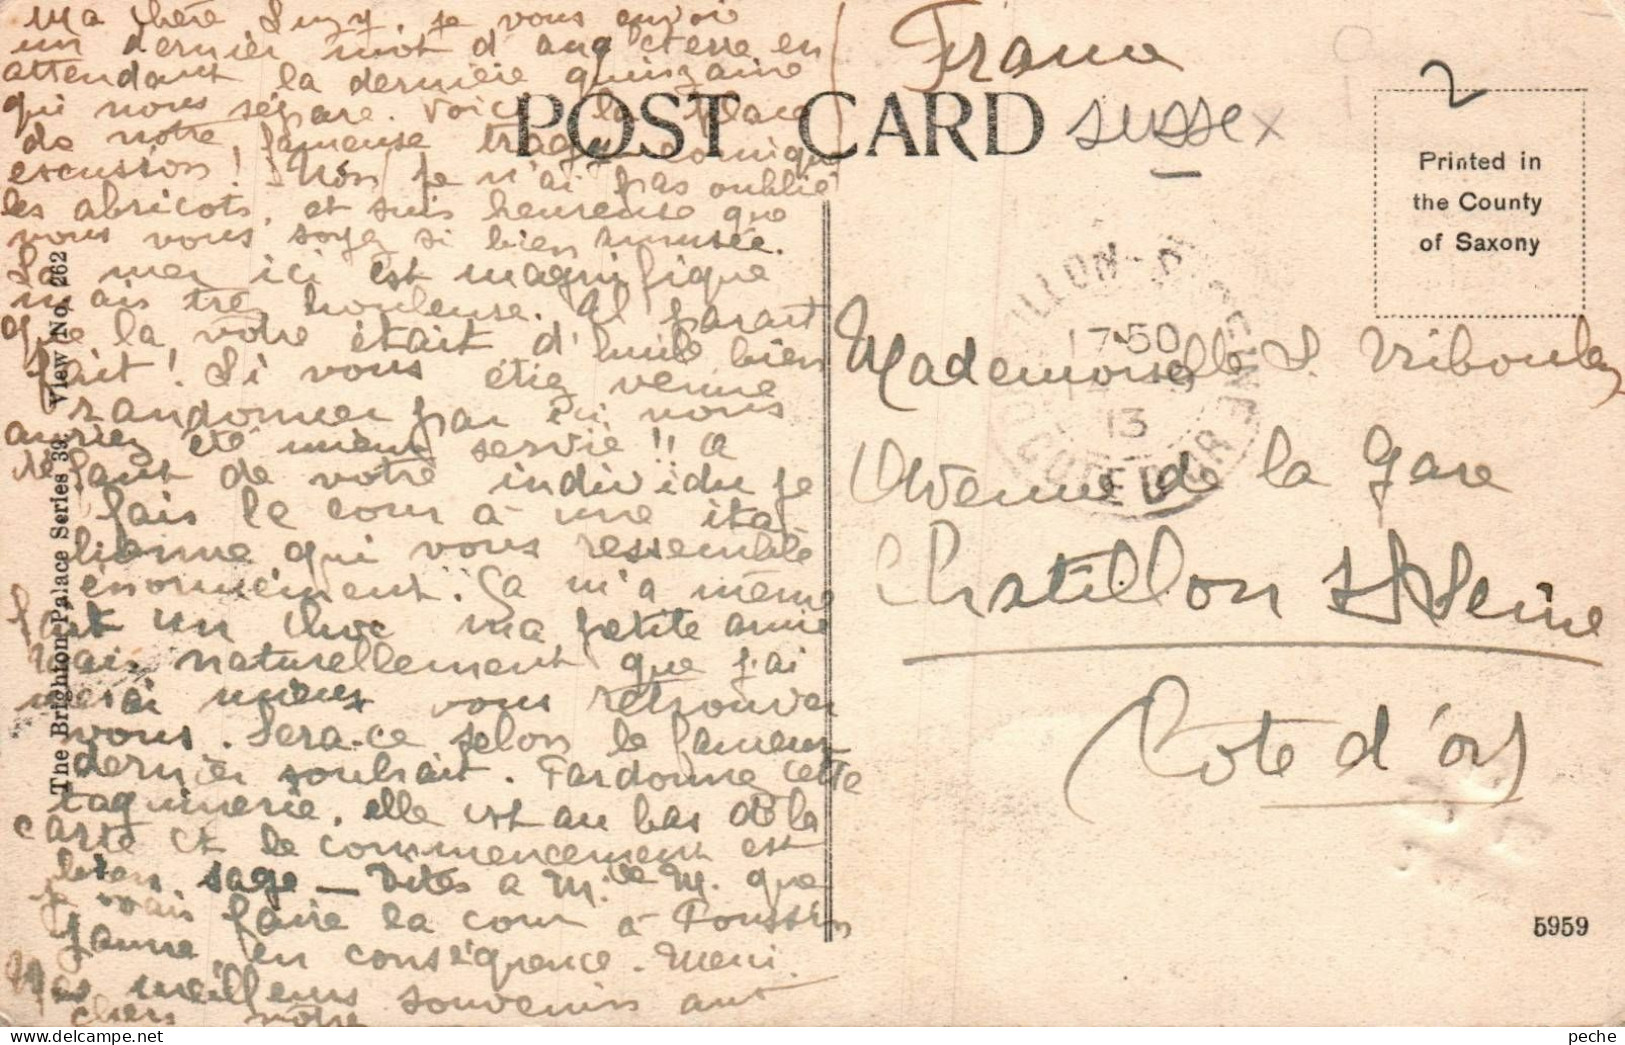 Ma chère Suzy, je vous envoie
un dernier mot d'angleterre en
attendant la dernière quinzaine
qui nous sépare. Voici la place
de notre fameuse tragi-comique
excussion! Non je n'ai pas oublié
les abricots, et suis heureuse que
vous vous soyez si bien amusée.
La mer ici est magnifique
mais très houleuse. Il parait
que la votre était d'huile bien
fait! Si vous étiez venue
randonner par ici vous
auriez été mieux servie!! A
défaut de votre individu je
fais la cour à une ita
lienne qui vous ressemble
énormément. Ça m'a même
fait un choc ma petite amie
mais naturellement que j'ai
mieux vous retrouver
vous. Sera-ce selon le fameux
dernier souhait. Pardonnez cette
taquinerie, elle est au bas de la
carte et le commencement est
bien sage — Dites à M. que
je vais faire la cour à
jaune, en conséquence.
Mes meilleurs souvenirs aux
chers votre
The Brighton Palace Series 39. View No. 262
POST CARD
France
Sussex
2
Printed in
the County
of Saxony
17-50
13
COTE D'OR
Mademoiselle S.
Avenue de la Gare
Chatillon s/Seine
Cote d'or
5959
peche